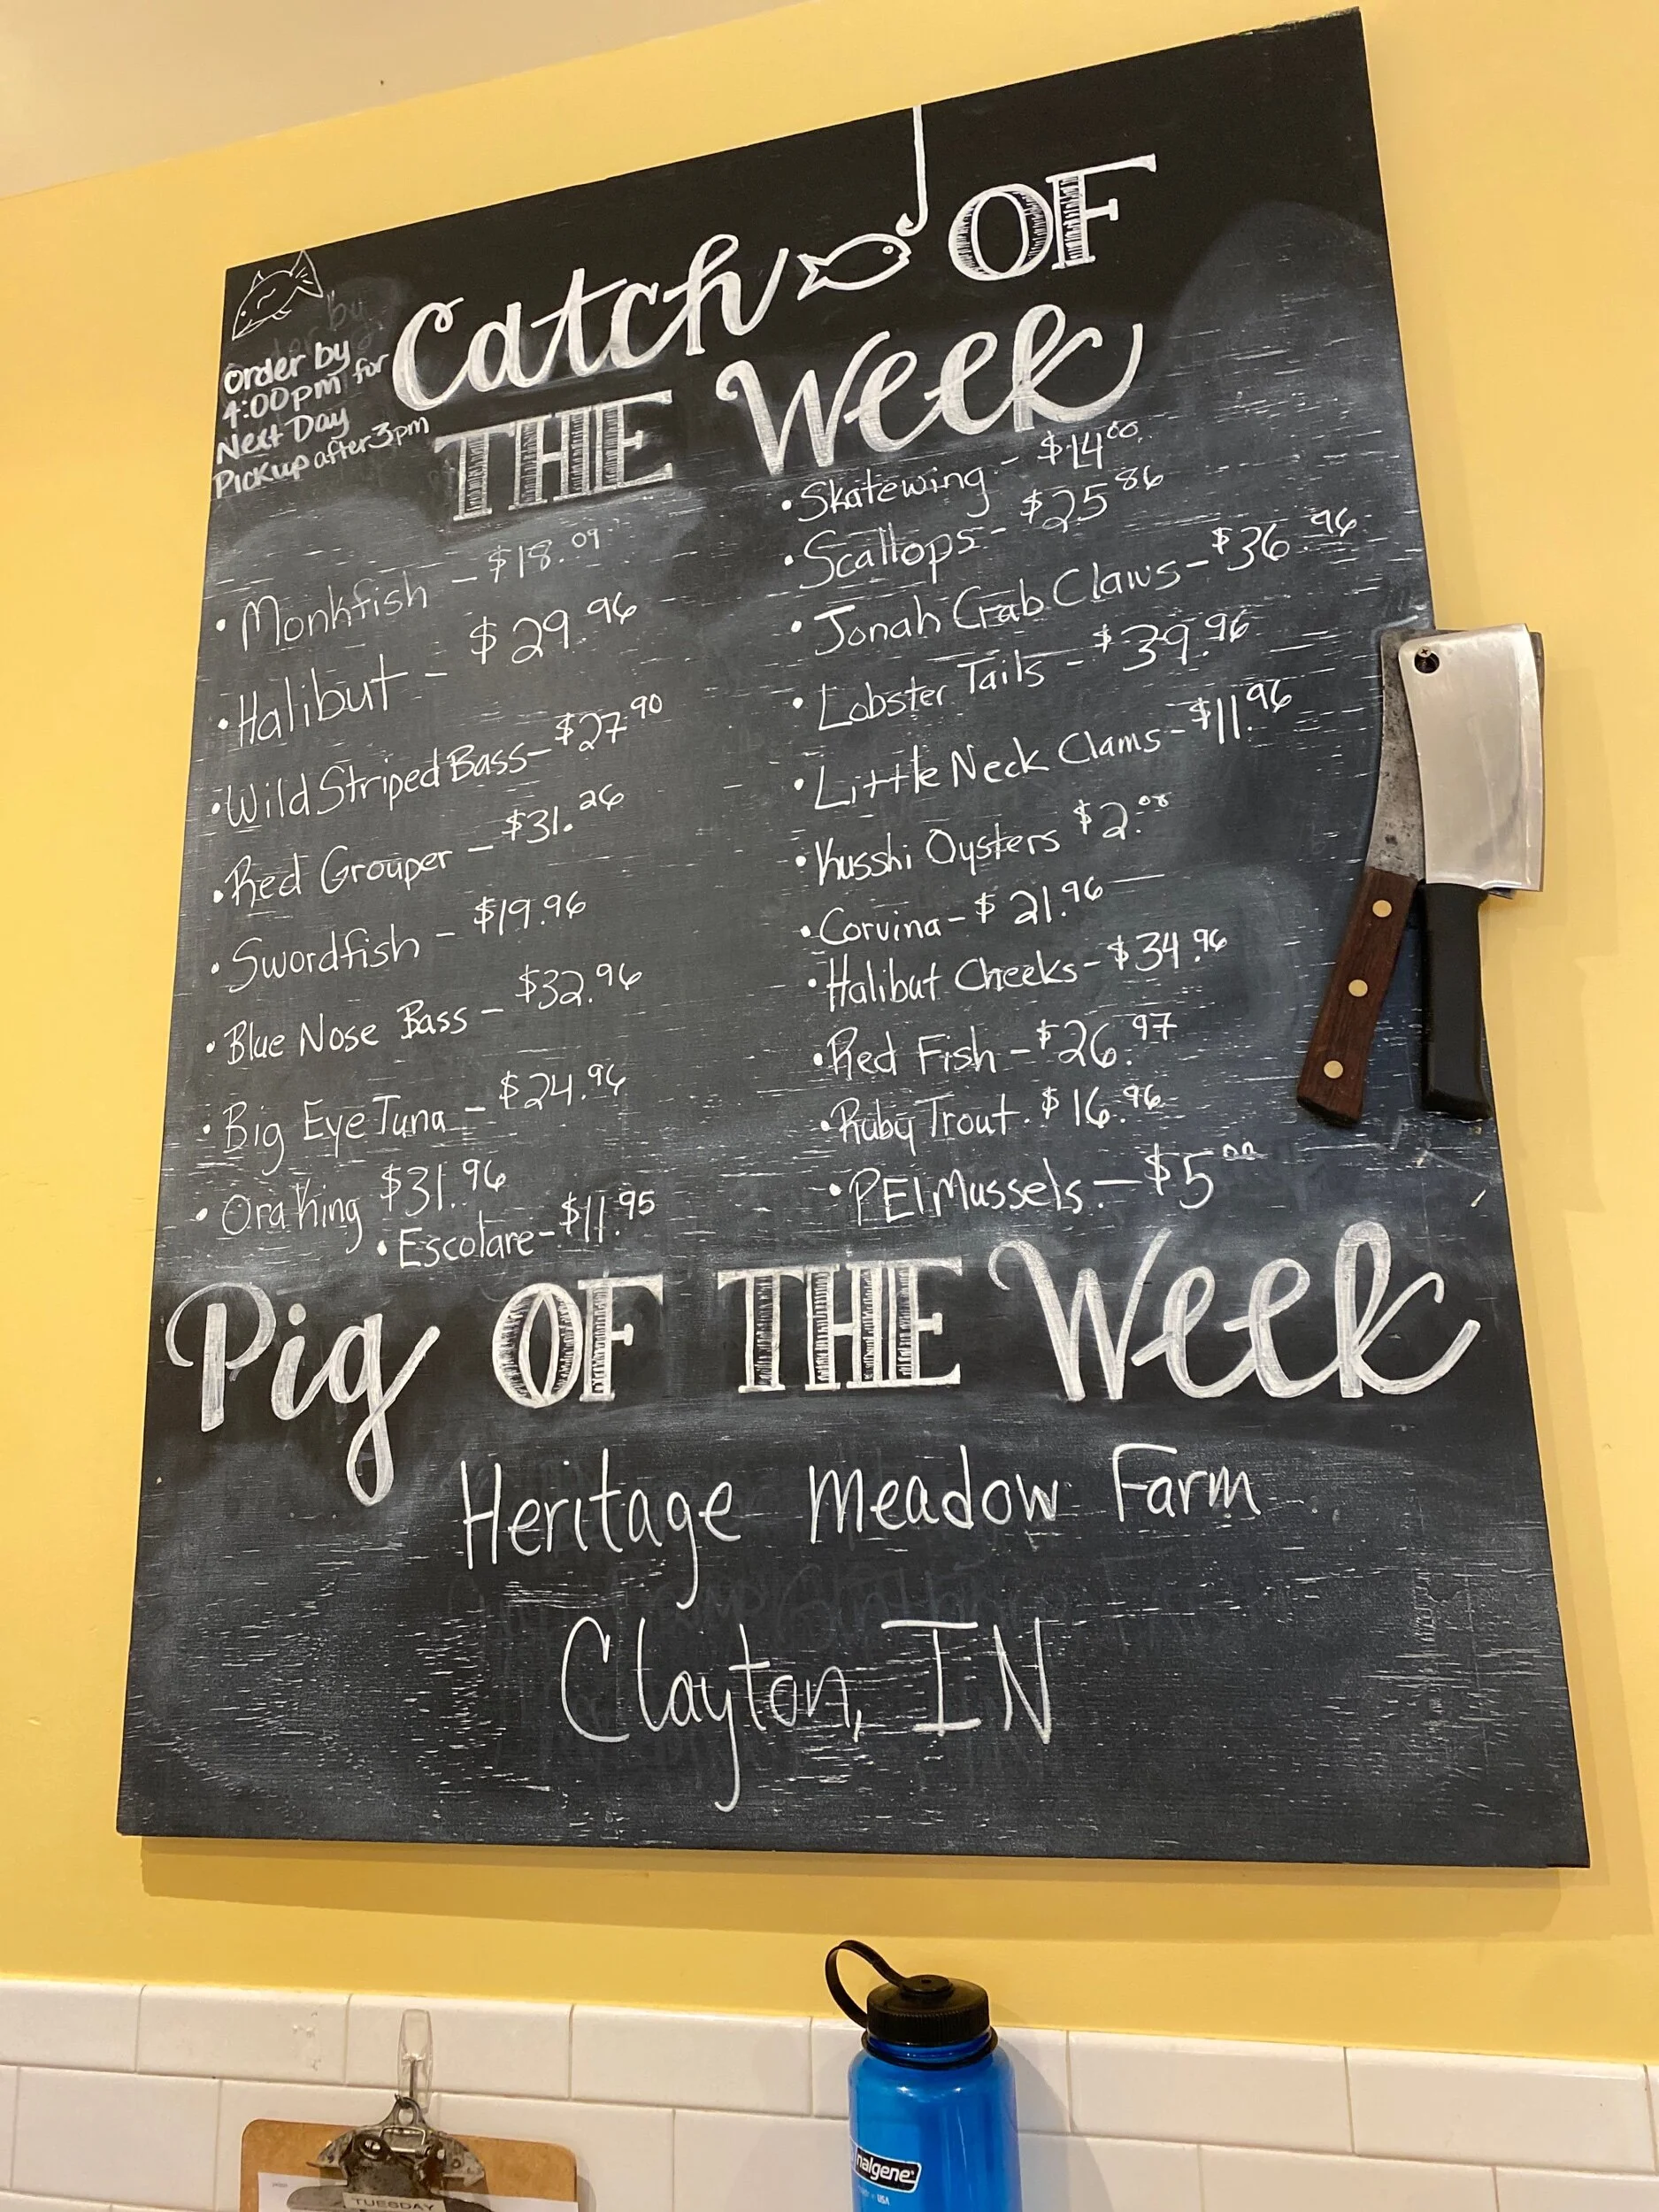 Catch OF
THE Week
Order by
4:00pm for
Next Day
Pickup after 3pm
• Monkfish - $18.09
• Halibut - $29.96
• Wild Striped Bass - $27.90
• Red Grouper - $31.26
• Swordfish - $19.96
• Blue Nose Bass - $32.96
• Big Eye Tuna - $24.96
• Ora King $31.96
• Escolare - $11.95
• Skatewing - $14.00
• Scallops - $25.86
• Jonah Crab Claws - $36.96
• Lobster Tails - $39.96
• Little Neck Clams - $11.96
• Kusshi Oysters $2.00
• Corvina - $21.96
• Halibut Cheeks - $34.96
• Red Fish - $26.97
• Ruby Trout . $16.96
• PEI Mussels - $5.00
Pig OF THE Week
Heritage Meadow Farm
Clayton, IN
TUESDAY
nalgene
USA